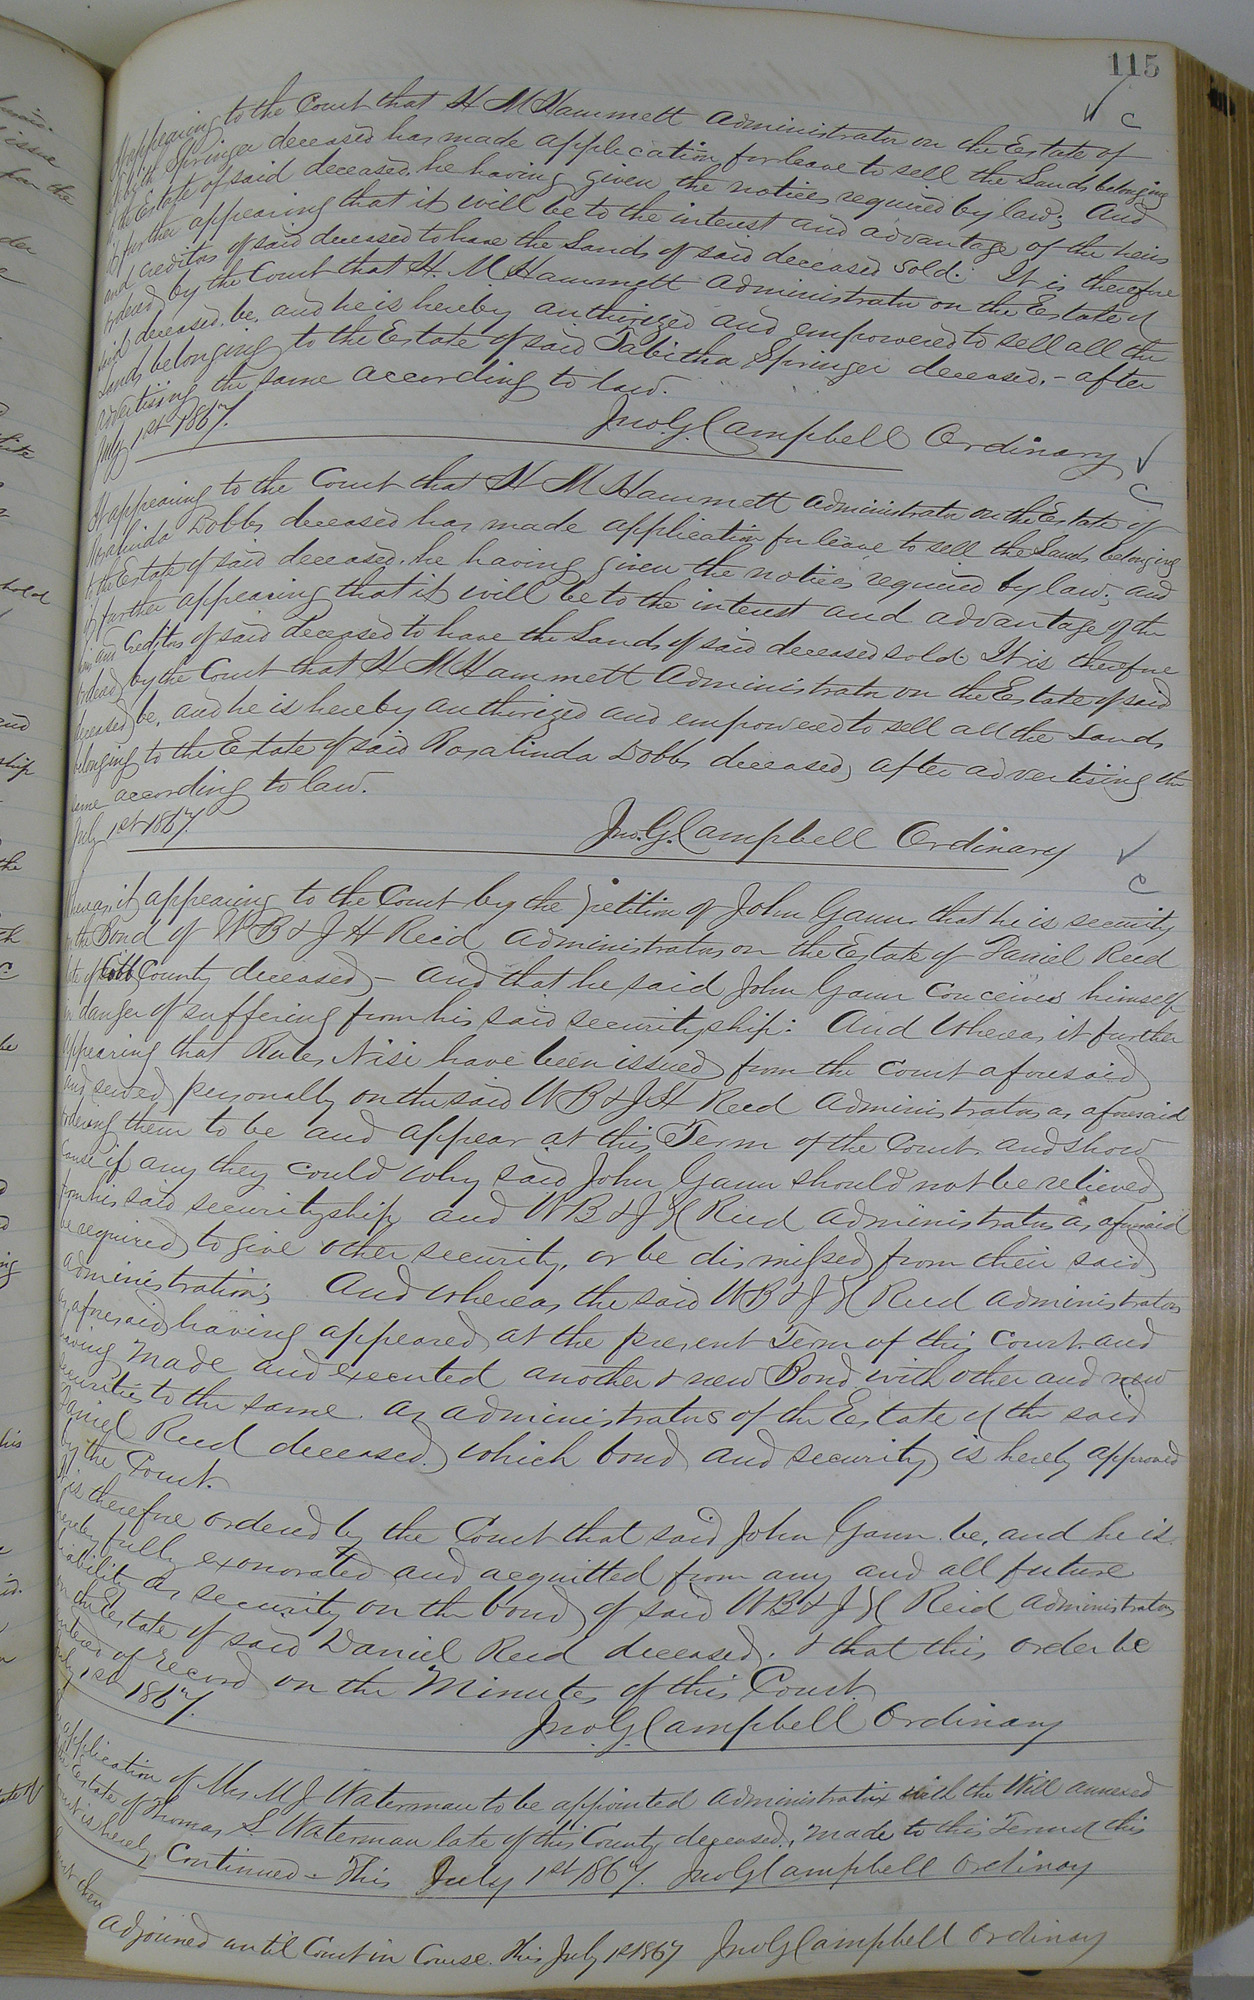 115
It appearing to the Court that H M Hammett Administrator on the Estate of
Tabitha Springer deceased has made application for leave to sell the Lands belonging
to the Estate of said deceased. he having given the notices required by law; And
it further appearing that it will be to the interest and advantage of the heirs
and creditors of said deceased to have the Lands of said deceased sold. It is therefore
ordered by the Court that H. M Hammett Administrator on the Estate of
said deceased. be, and he is hereby authorized and empowered to sell all the
Lands belonging to the Estate of said Tabitha Springer deceased, - after
advertising the same according to law.
July 1st 1867.
Jno. G. Campbell Ordinary
C
It appearing to the Court that H M Hammett Administrator on the Estate of
Rosalinda Dobbs deceased has made application for leave to sell the Lands belonging
to the Estate of said deceased. he having given the notices required by law; and
it further appearing that it will be to the interest and advantage of the
heirs and Creditors of said deceased to have the Lands of said deceased sold. It is therefore
ordered by the Court that H M Hammett Administrator on the Estate of said
deceased be, and he is hereby authorized and empowered to sell all the Lands
belonging to the Estate of said Rosalinda Dobbs deceased, after advertising the
same according to law.
July 1st 1867.
Jno. G. Campbell Ordinary
C
Whereas it appearing to the Court by the petition of John Gann that he is security
on the Bond of W B & J H Reid Administrators on the Estate of Daniel Reed
late of Cobb County deceased - and that he said John Gann conceives himself
in danger of suffering from his said securityship: And Whereas it further
appearing that Rules Nisi have been issued from the Court aforesaid
and served personally on the said W B & J H Reed Administrators as aforesaid
ordering them to be and appear at this Term of the Court and show
cause if any they could why said John Gann should not be relieved
from his said securityship and W B & J H Reed Administrators as aforesaid
be required to give other security, or be dismissed from their said
administration; And Whereas the said W B & J H Reed Administrators
as aforesaid having appeared at the present Term of this Court and
having made and executed another & new Bond with other and new
securities to the same. as administrators of the Estate of the said
Daniel Reed deceased, which bond and security is hereby approved
by the Court.
It is therefore ordered by the Court that said John Gann be, and he is
hereby fully exonorated and acquitted from any and all future
liability as security on the bond of said W B & J H Reid Administrators
on the Estate of said Daniel Reed deceased. & that this order be
entered of record on the Minutes of this Court
July 1st 1867.
Jno. G. Campbell Ordinary
application of Mrs M J Waterman to be appointed Administratrix with the Will annexed
Estate of Thomas S. Waterman late of this County deceased, made to this Term of this
Court is hereby Continued - This July 1st 1867. Jno G Campbell Ordinary
Court then
adjoined until Court in Course. This July 1st 1867 Jno G Campbell Ordinary